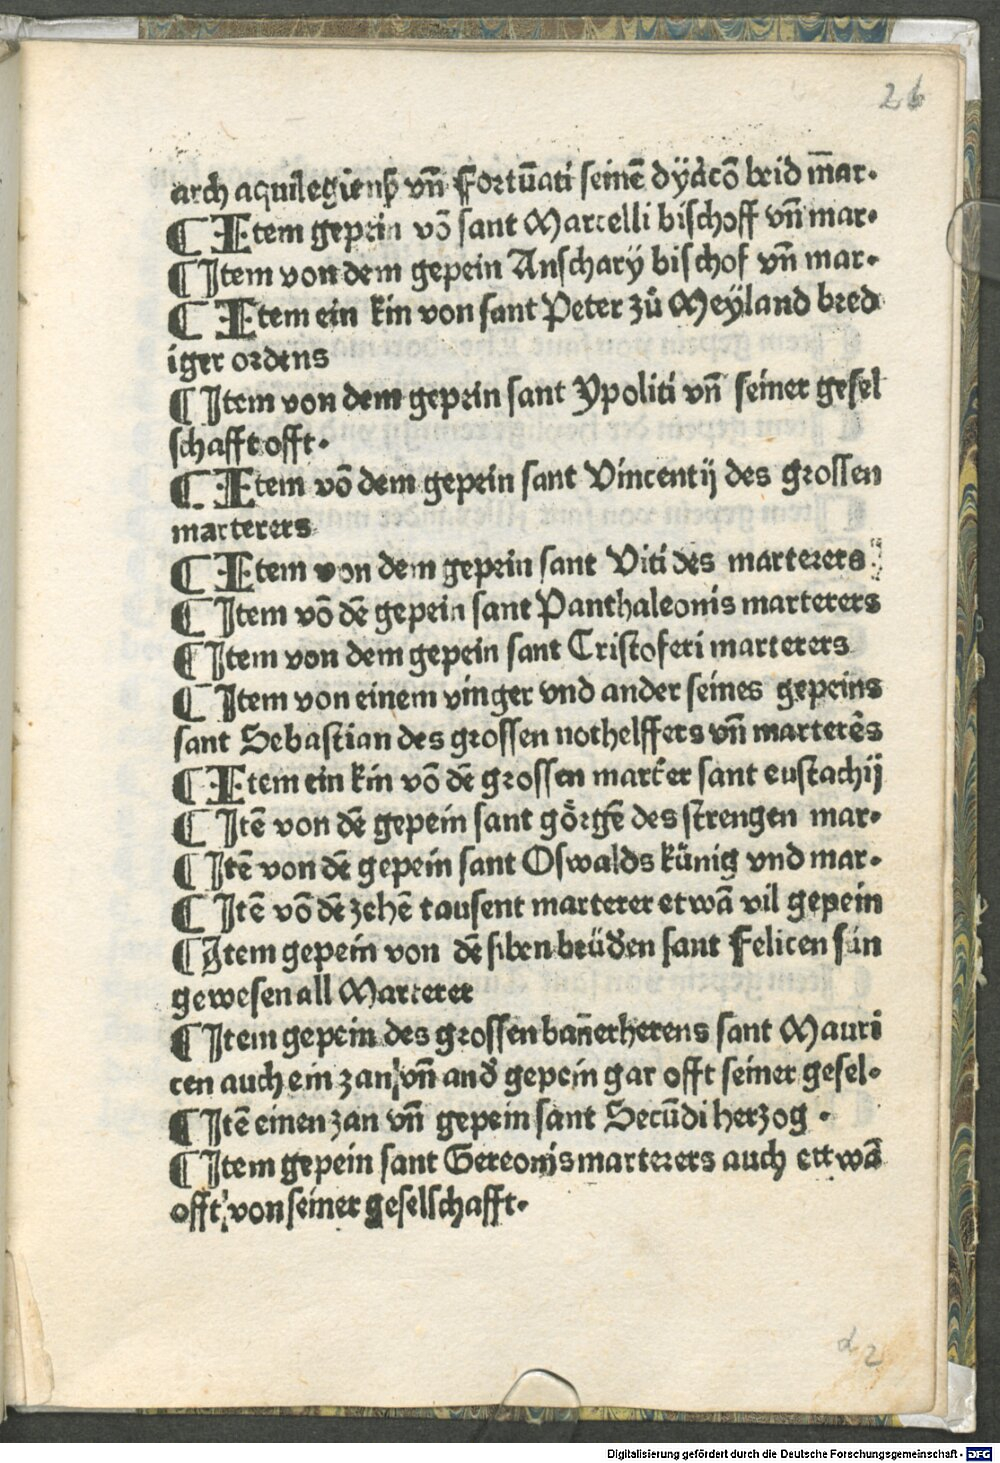 26
arch aquilegienß vñ Fortūati seinē dyacō beid m̄ar.
¶ Item gepein vō sant Marcelli bischoff vñ mar.
¶ Item von dem gepein Anschary bischof vñ mar.
¶ Item ein kin von sant Peter zů Meyland bred
iger ordens
¶ Item von dem gepein sant Ypoliti vñ seiner gesel
schafft offt.
¶ Item vō dem gepein sant Vincentij des grossen
marterers
¶ Item von dem gepein sant Viti des marterers
¶ Item vō dē gepein sant Panthaleonis marterers
¶ Item von dem gepein sant Cristoferi marterers
¶ Item von einem vinger vnd ander seines gepeins
sant Sebastian des grossen nothelffers vñ marterês
¶ Item ein kin vō dē grossen mart̄er sant eustachij
¶ Itē von dē gepein sant gôrgē des strengen mar.
¶ Itē von dē gepein sant Oswalds künig vnd mar.
¶ Itē vō dē zehē tausent marterer etwā vil gepein
¶ Item gepein von dē siben brüđen sant Felicen sün
gewesen all Marterer
¶ Item gepein des grossen bañerherens sant Mauri
cen auch ein zan vñ anđ gepein gar offt seiner gesel.
¶ Itē einen zan vñ gepein sant Secūdi herzog .
¶ Item gepein sant Gereonis marterers auch ettwā
offt von seiner gesellschafft.
d 2
Digitalisierung gefördert durch die Deutsche Forschungsgemeinschaft - DFG